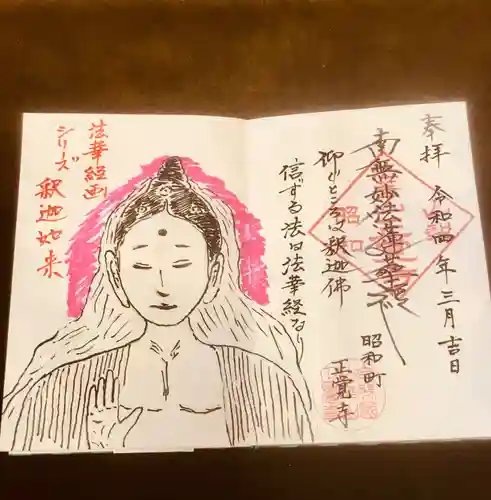 奉拝
令和四年三月吉日
南無妙法蓮華経
昭和町
正覚寺
仰ぐところは釈迦佛
信ずる法は法華経なり
法華経画
シリーズ
釈迦如来